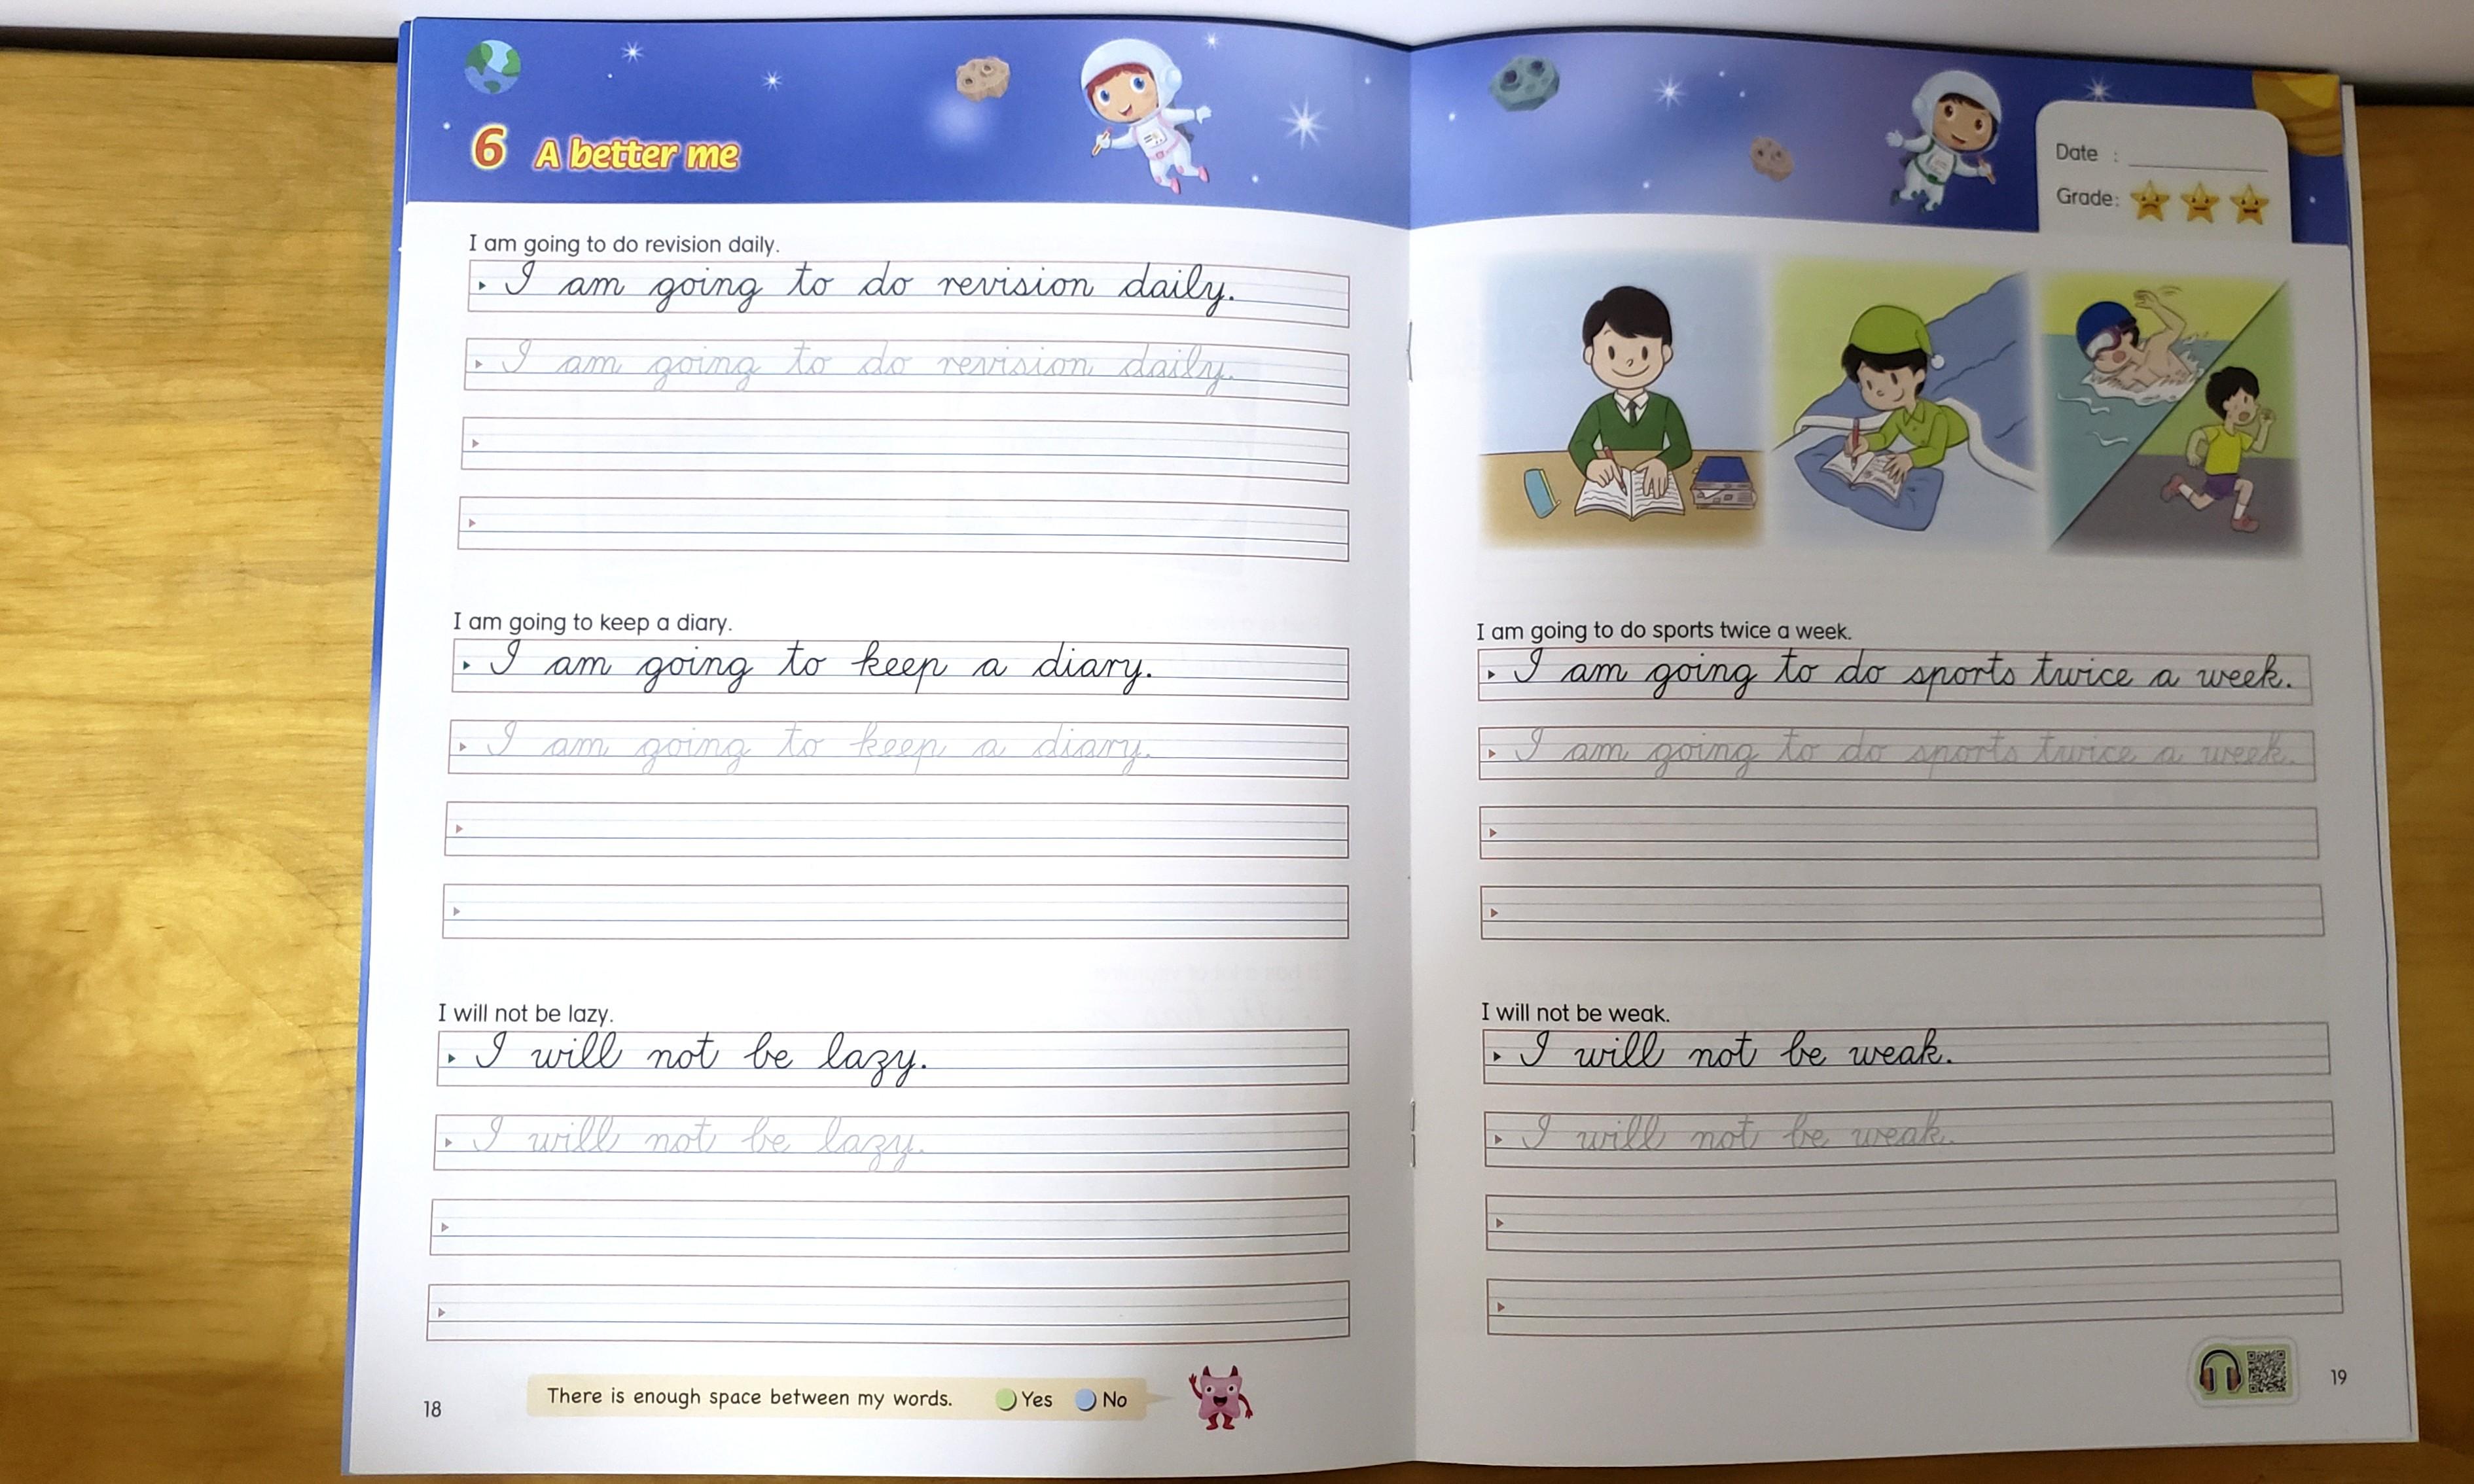 6 A better me
I am going to do revision daily.
I am going to do revision daily.
I am going to do revision daily.
I am going to keep a diary.
I am going to keep a diary.
I am going to keep a diary.
I will not be lazy.
I will not be lazy.
I will not be lazy.
There is enough space between my words. Yes No
18
Date :
Grade:
I am going to do sports twice a week.
I am going to do sports twice a week.
I am going to do sports twice a week.
I will not be weak.
I will not be weak.
I will not be weak.
19